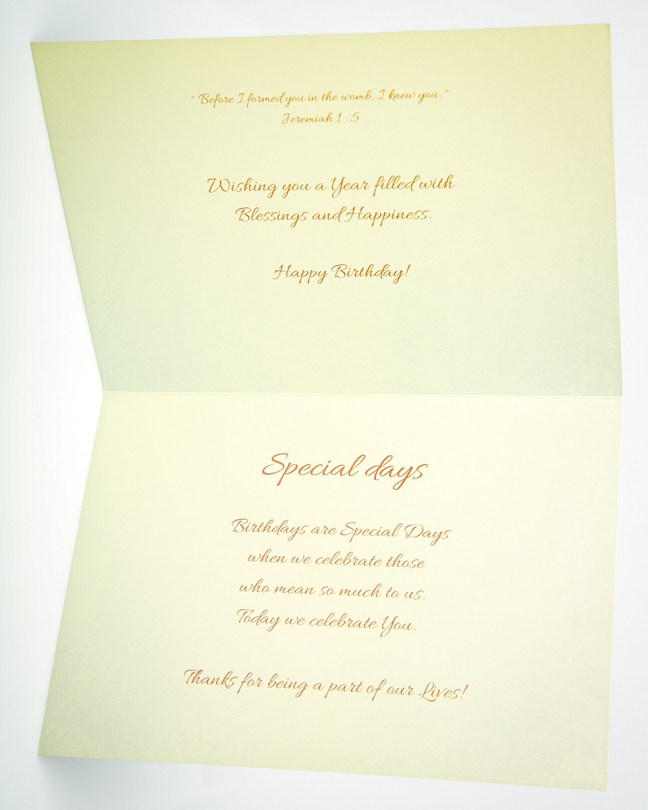 "Before I formed you in the womb, I knew you."
Jeremiah 1 : 5
Wishing you a Year filled with
Blessings and Happiness.
Happy Birthday!
Special days
Birthdays are Special Days
when we celebrate those
who mean so much to us.
Today we celebrate You.
Thanks for being a part of our Lives!